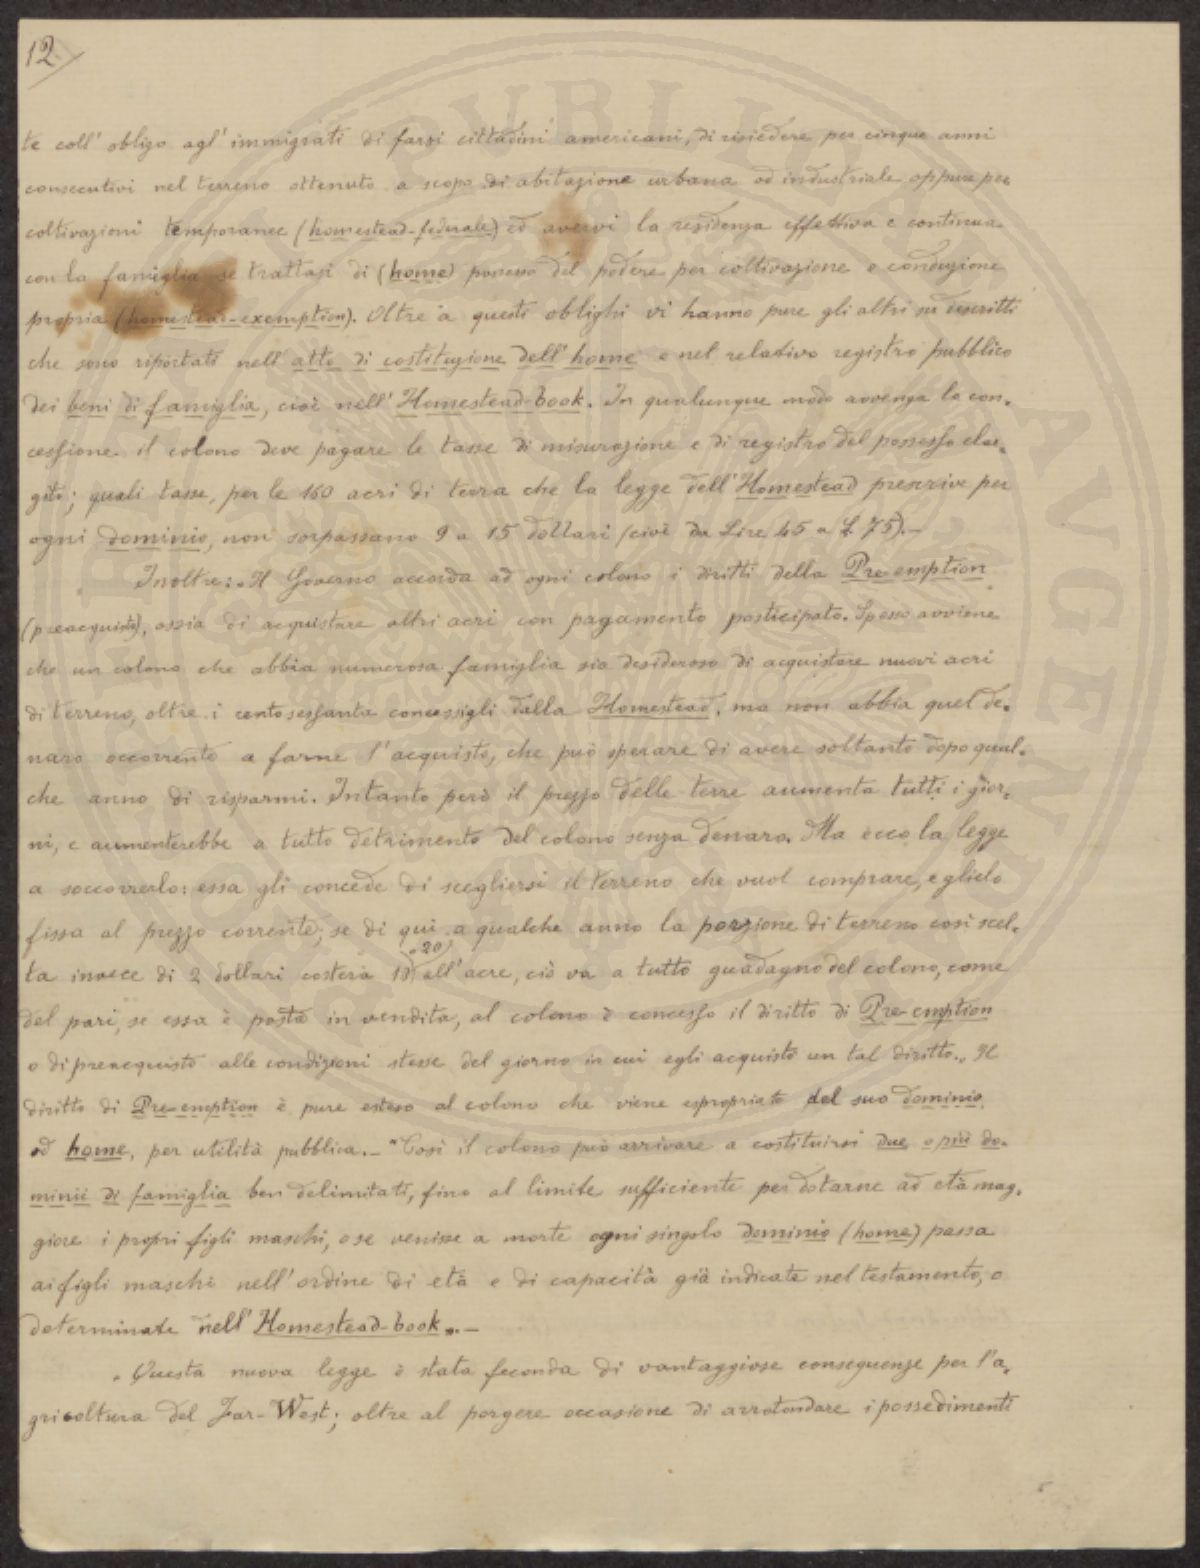 12.
te coll' obligo agl' immigrati di farsi cittadini americani, di risiedere per cinque anni
consecutivi nel terreno ottenuto a scopo di abitazione urbana od industriale oppure per
coltivazioni temporanee (homestead-federale) ed avervi la residenza effettiva e continua
con la famiglia se trattasi di (home) possesso del podere per coltivazione e conduzione
propria (homestead-exemption). Oltre a questi oblighi vi hanno pure gli altri su descritti
che sono riportati nell' atto di costituzione dell' home e nel relativo registro pubblico
dei beni di famiglia, cioè nell' Homestead-book. In qualunque modo avvenga la con-
cessione il colono deve pagare le tasse di misurazione e di registro del possesso elar-
gito; quali tasse, per le 160 acri di terra che la legge dell' Homestead prescrive per
ogni dominio, non sorpassano 9 a 15 dollari (cioè da Lire 45 a £ 75).-
Inoltre: „Il Governo accorda ad ogni colono i diritti della Pre-emption
(preacquisto), ossia di acquistare altri acri con pagamento posticipato. Spesso avviene
che un colono che abbia numerosa famiglia sia desideroso di acquistare nuovi acri
di terreno, oltre i centosessanta concessigli dalla Homestead, ma non abbia quel de-
naro occorrente a farne l' acquisto, che può sperare di avere soltanto dopo qual-
che anno di risparmi. Intanto però il prezzo delle terre aumenta tutti i gior-
ni, e aumenterebbe a tutto detrimento del colono senza denaro. Ma ecco la legge
a soccorrerlo: essa gli concede di scegliersi il terreno che vuol comprare, e glielo
fissa al prezzo corrente; se di qui a qualche anno la porzione di terreno così scel-
o 20
ta invece di 2 dollari costerà 10 all' acre, ciò va a tutto guadagno del colono, come
del pari, se essa è posta in vendita, al colono è concesso il diritto di Pre-emption
o di preacquisto alle condizioni stesse del giorno in cui egli acquistò un tal diritto.„ Il
diritto di Pre-emption è pure esteso al colono che viene espropriato del suo dominio
od home, per utilità pubblica.- "Così il colono può arrivare a costituirsi due o più do-
minii di famiglia ben delimitati, fino al limite sufficiente per dotarne ad età mag-
giore i propri figli maschi, o se venisse a morte ogni singolo dominio (home) passa
ai figli maschi nell' ordine di età e di capacità già indicate nel testamento, o
determinate nell' Homestead-book„.-
„Questa nuova legge è stata feconda di vantaggiose conseguenze per l'a-
gricoltura del Far-West; oltre al porgere occasione di arrotondare i possedimenti